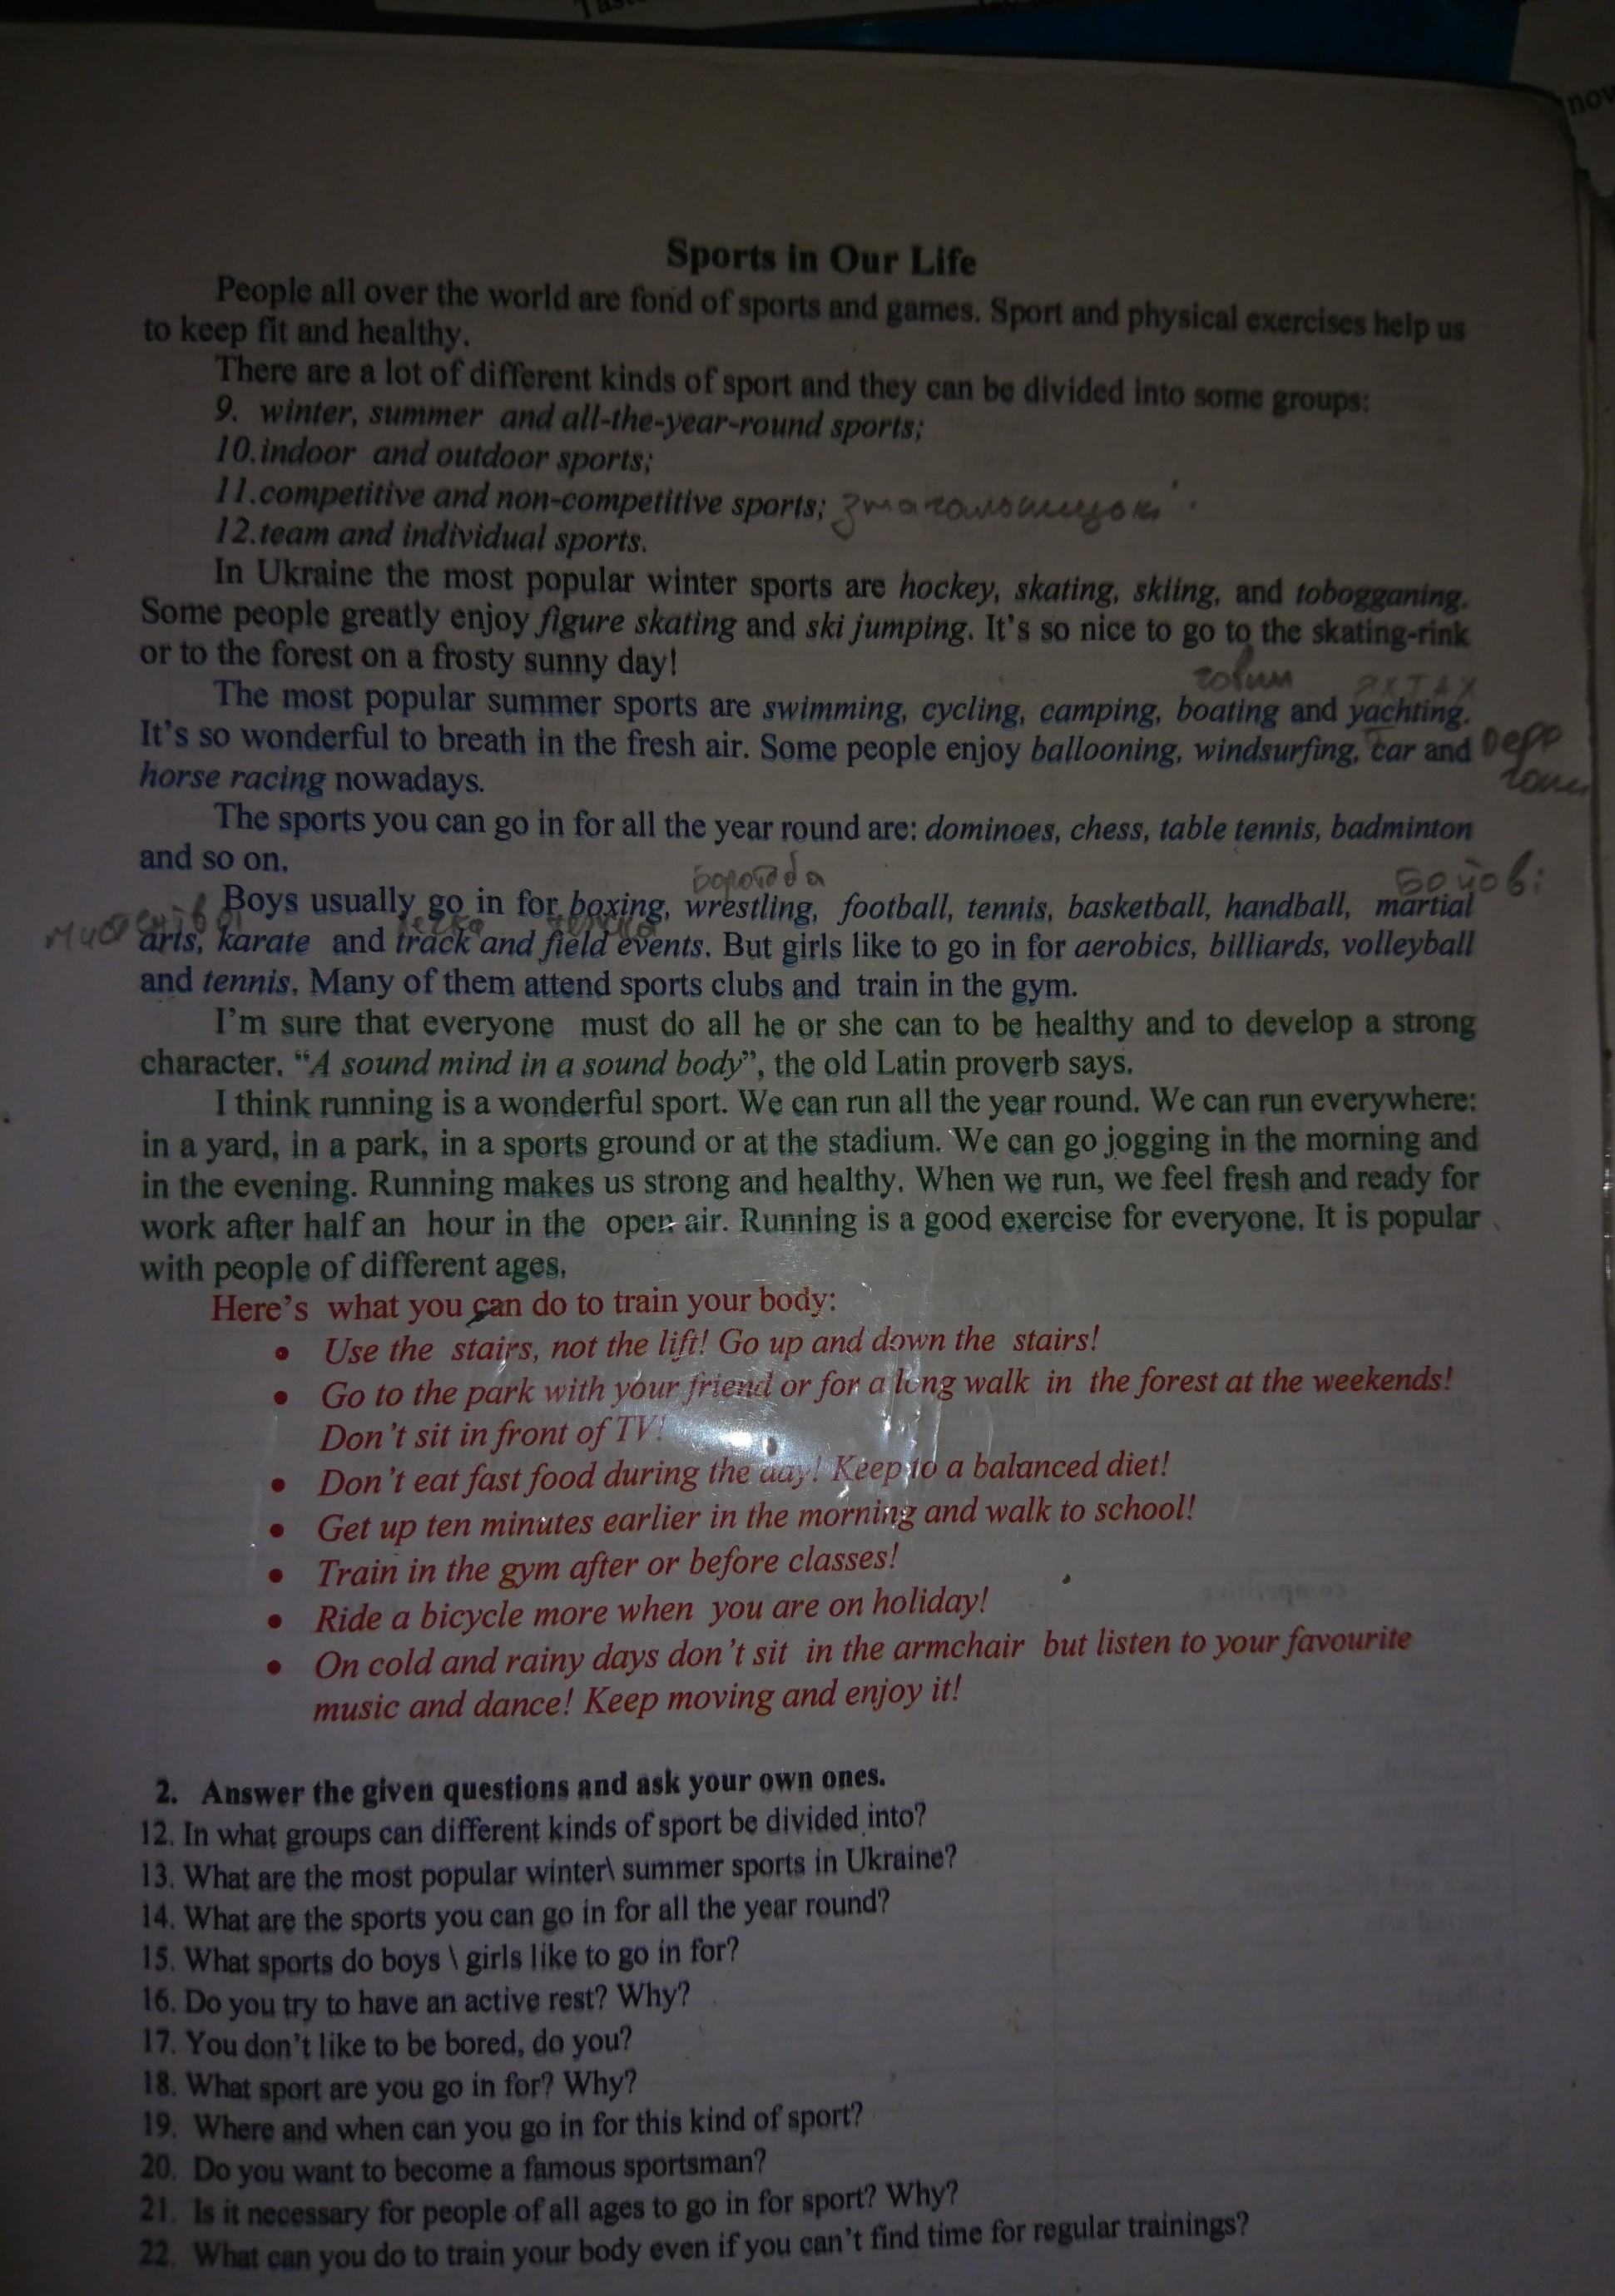 Sports in Our Life
People all over the world are fond of sports and games. Sport and physical exercises help us
to keep fit and healthy.
There are a lot of different kinds of sport and they can be divided into some groups:
9. winter, summer and all-the-year-round sports;
10.indoor and outdoor sports;
11.competitive and non-competitive sports;
12.team and individual sports.
In Ukraine the most popular winter sports are hockey, skating, skiing, and tobogganing.
Some people greatly enjoy figure skating and ski jumping. It's so nice to go to the skating-rink
or to the forest on a frosty sunny day!
The most popular summer sports are swimming, cycling, camping, boating and yachting.
It's so wonderful to breath in the fresh air. Some people enjoy ballooning, windsurfing, car and
horse racing nowadays.
The sports you can go in for all the year round are: dominoes, chess, table tennis, badminton
and so on.
боротьба
Бойові
Boys usually go in for boxing, wrestling, football, tennis, basketball, handball, martial
arts, karate and track and field events. But girls like to go in for aerobics, billiards, volleyball
and tennis. Many of them attend sports clubs and train in the gym.
I'm sure that everyone must do all he or she can to be healthy and to develop a strong
character. “A sound mind in a sound body”, the old Latin proverb says.
I think running is a wonderful sport. We can run all the year round. We can run everywhere:
in a yard, in a park, in a sports ground or at the stadium. We can go jogging in the morning and
in the evening. Running makes us strong and healthy. When we run, we feel fresh and ready for
work after half an hour in the open air. Running is a good exercise for everyone. It is popular
with people of different ages.
Here's what you can do to train your body:
• Use the stairs, not the lift! Go up and down the stairs!
• Go to the park with your friend or for a long walk in the forest at the weekends!
Don't sit in front of TV!
• Don't eat fast food during the day! Keep to a balanced diet!
• Get up ten minutes earlier in the morning and walk to school!
• Train in the gym after or before classes!
• Ride a bicycle more when you are on holiday!
• On cold and rainy days don't sit in the armchair but listen to your favourite
music and dance! Keep moving and enjoy it!
2. Answer the given questions and ask your own ones.
12. In what groups can different kinds of sport be divided into?
13. What are the most popular winter\ summer sports in Ukraine?
14. What are the sports you can go in for all the year round?
15. What sports do boys \ girls like to go in for?
16. Do you try to have an active rest? Why?
17. You don't like to be bored, do you?
18. What sport are you go in for? Why?
19. Where and when can you go in for this kind of sport?
20. Do you want to become a famous sportsman?
21. Is it necessary for people of all ages to go in for sport? Why?
22. What can you do to train your body even if you can't find time for regular trainings?